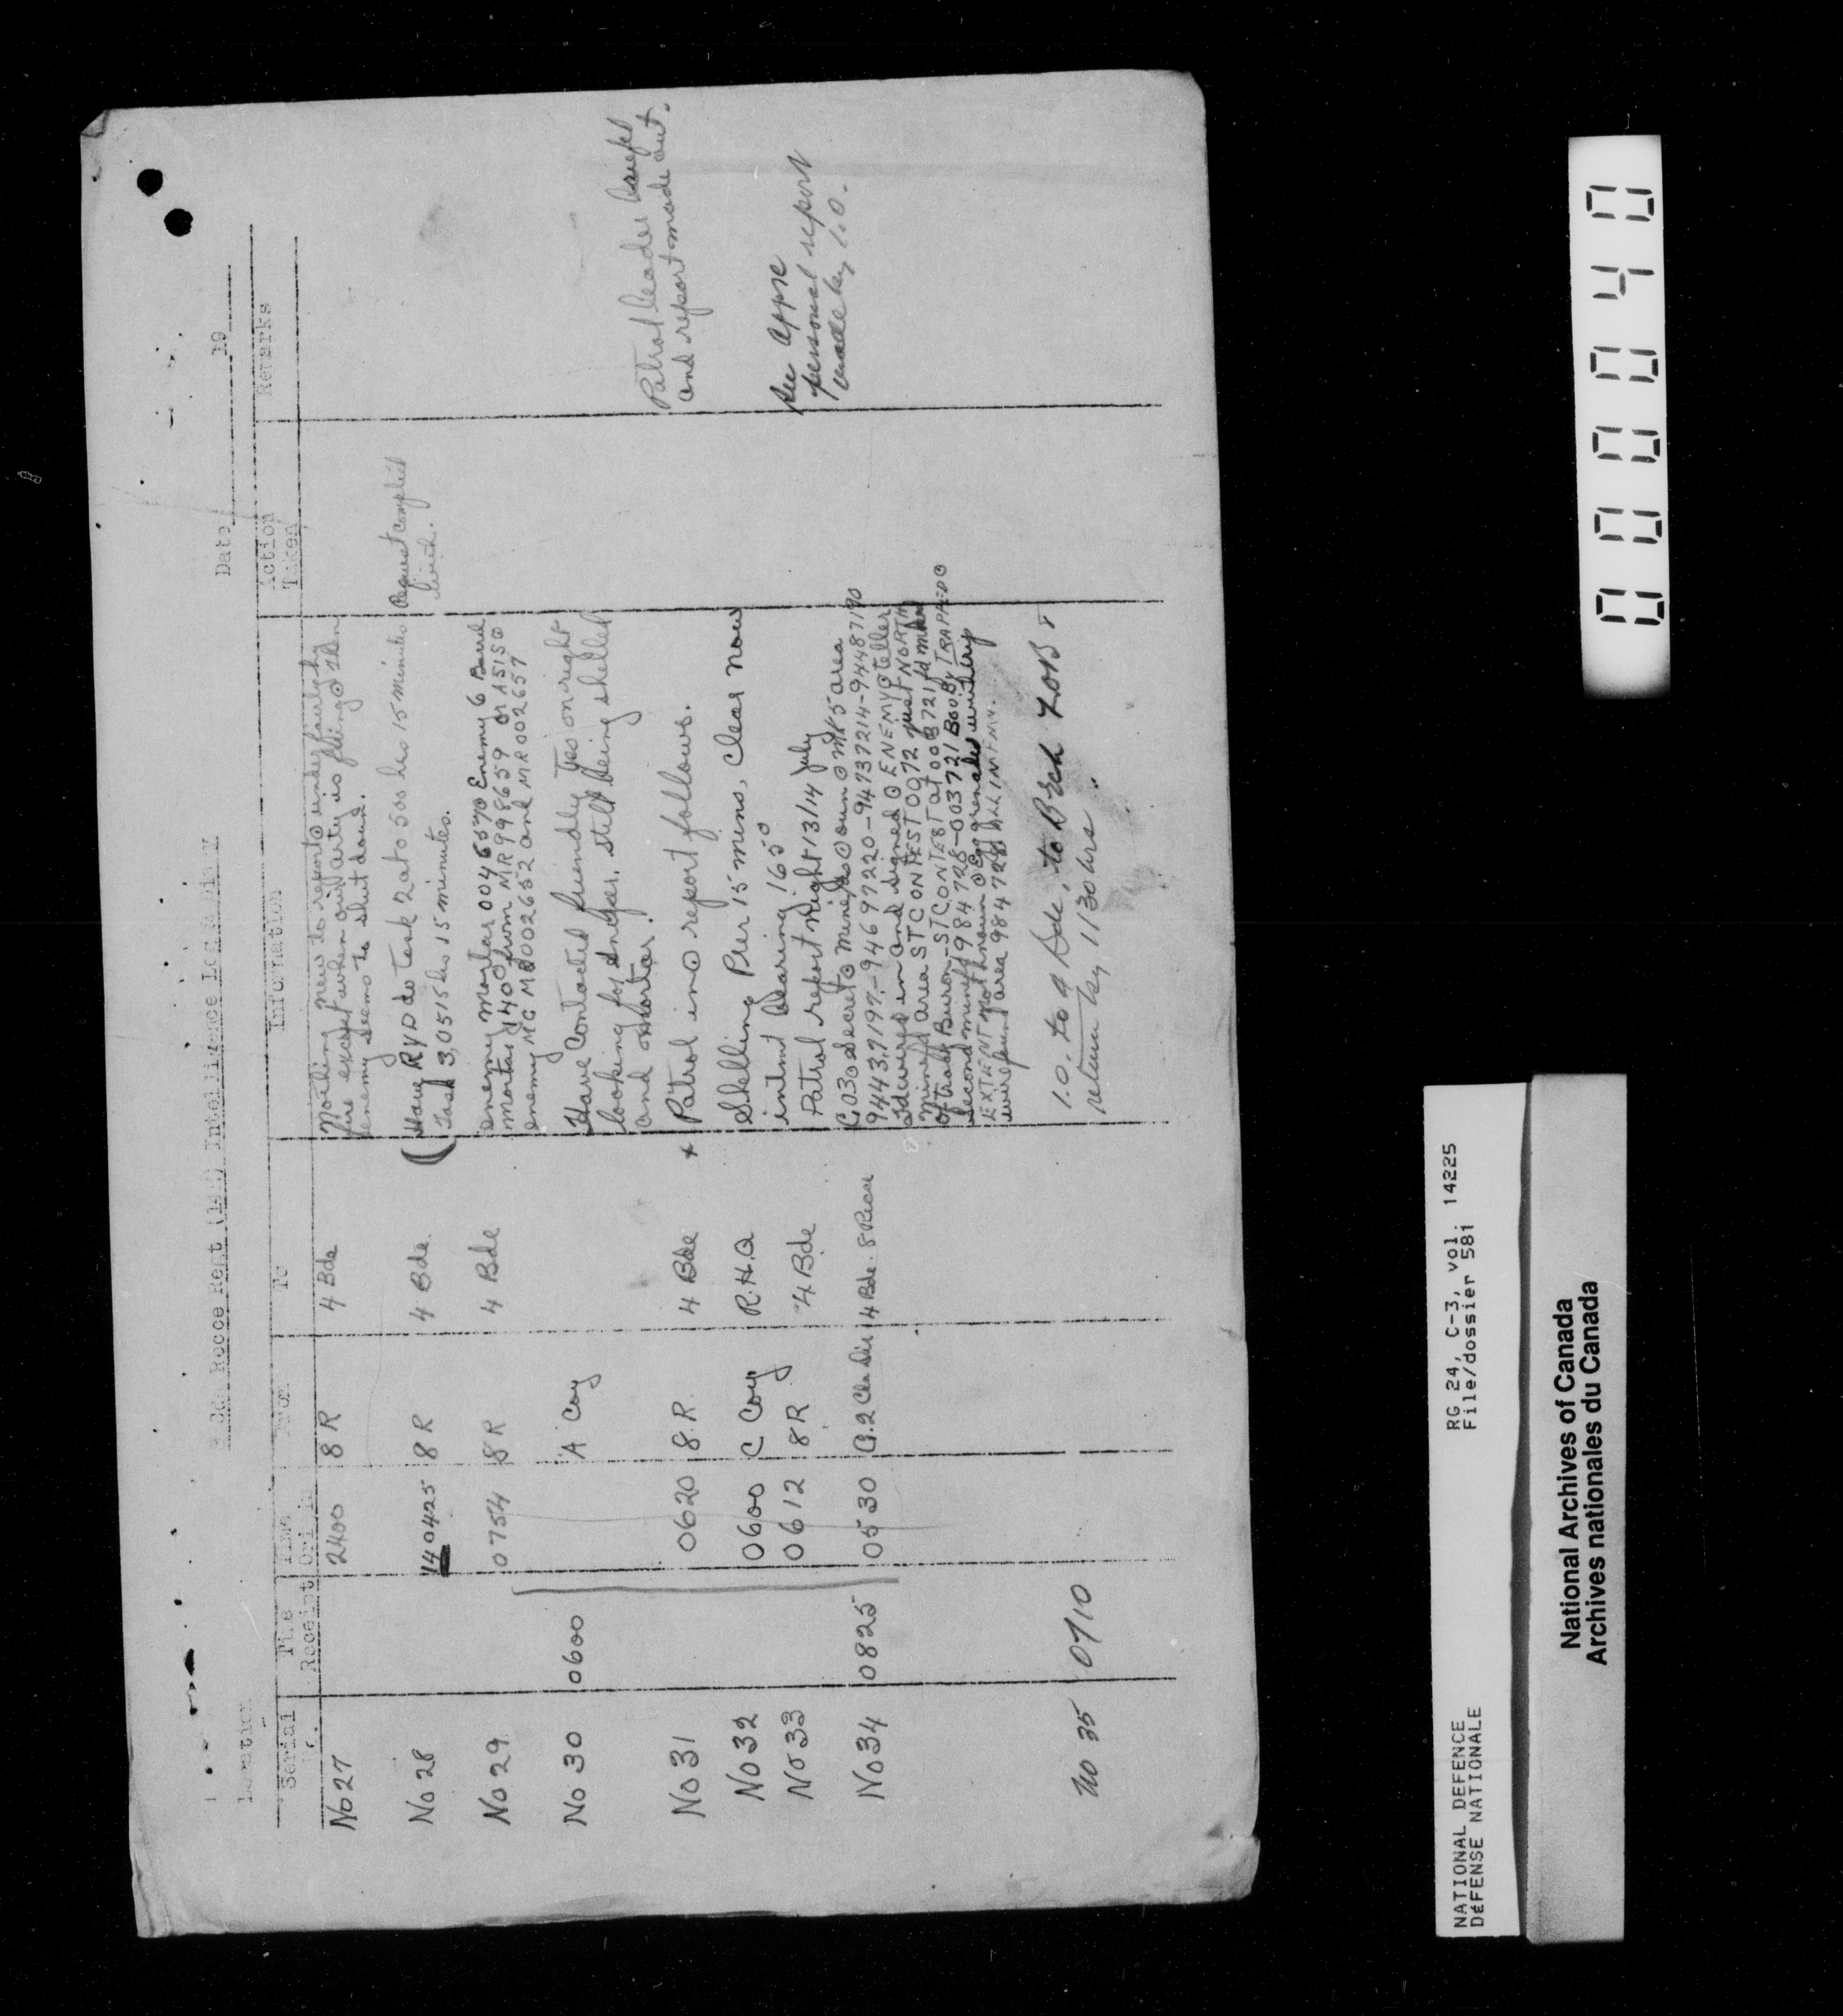 8 Cdn Recce Regt (14H) Intelligence Log & Diary
Location
Date 19
Serial
Time Receipt
Time Origin
From
To
Information
Action Taken
Remarks
No 27 2400 8 R 4 Bde
Nothing new to report under
fire except when our arty is firing then
enemy seems to shut down.
No 28 140425 8 R 4 Bde.
Have RVD do task 2 at 0500 hrs 15 minutes
Task 3, 0515 hrs 15 minutes.
Request complied
with.
No 29 0754 8 R 4 Bde
enemy mortar 0046570 Enemy 6 Barrel
mortar 140° from MR 998659
enemy MG MR 002652 and MR 002657
No 30 0600 'A' Coy
Have contacted friendly Tps on right
looking for sniper. Still being shelled
and mortar.
No 31 0620 8 R. 4 Bde
x Patrol in ⊙ report follows.
Patrol leader
and report made out.
No 32 0600 C Coy R.H.Q
Shelling Per 15 mins, Clear now
No 33 0612 8 R 4 Bde
intmt bearing 165°
Patrol report Night 13/14 July
See appx
personal report
made by I.O.
No 34 0825 0530 G.2 Cdn Div 4 Bde. 8 Recce
G030 Secret ⊙ minefds ⊙ own ⊙ MK 5 area
94437197-94697220-94737214-94487190
wired in and signed ⊙ ENEMY ⊙ teller
minefd area ST CONTEST 0072 just NORTH
of track Buron-ST CONTEST at 003721 fd
second minefd 984728-003721 BOOBY TRAPPED ⊙
EXTENT not known ⊙ Egg grenades
wire area 984728
No 35 0710
I.O. to 4 Bde, to Bren LOB
return by 1130 hrs.
00040
NATIONAL DEFENCE
DÉFENSE NATIONALE
RG 24, C-3, vol. 14225
File/dossier 581
National Archives of Canada
Archives nationales du Canada